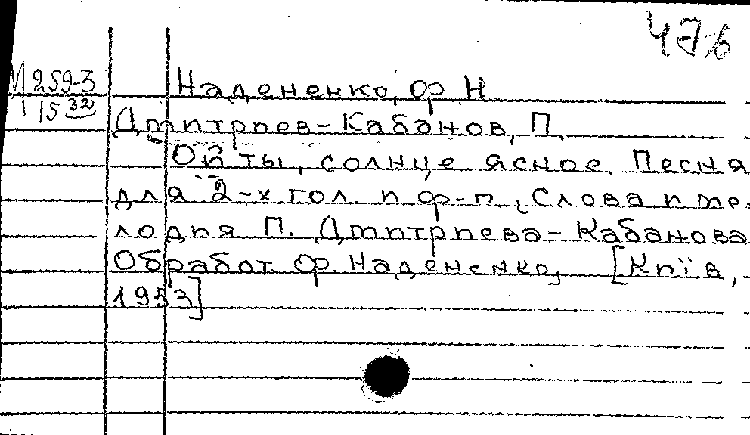 476
М 259-3
115 32
Надененко, Ф Н
Дмитриев-Кабанов, П.
Ой ты, солнце ясное. Песня
для 2-х гол. и ф-п. Слова и ме-
лодия П. Дмитриева-Кабанова
Обработ. Ф. Надененко, [Київ,
1953]